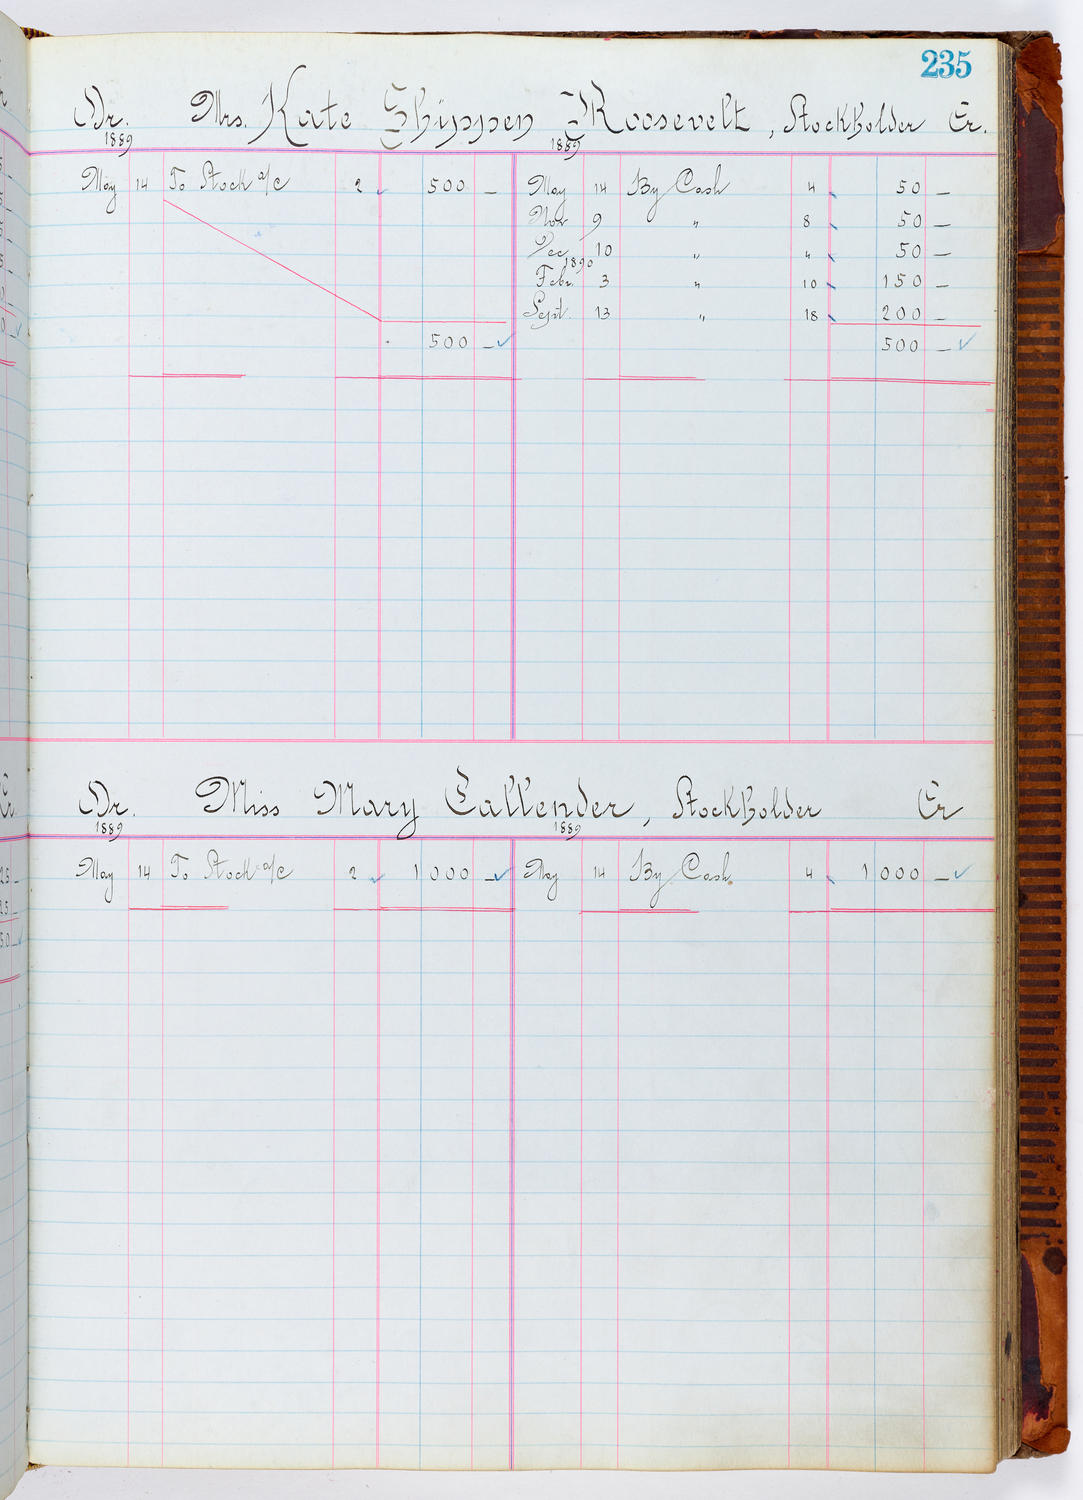 235
Dr. Mrs. Kate Shippen Roosevelt, Stockholder Cr.
1889 1889
May 14 To Stock a/c 2 500 — May 14 By Cash 4 50 —
Nov 9 " 8 50 —
Dec 10 " " 50 —
1890
Febr. 3 " 10 150 —
Sept. 13 " 18 200 —
500 — 500 —
Dr. Miss Mary Callender, Stockholder Cr
1889 1889
May 14 To Stock a/c 2 1000 — May 14 By Cash 4 1000 —